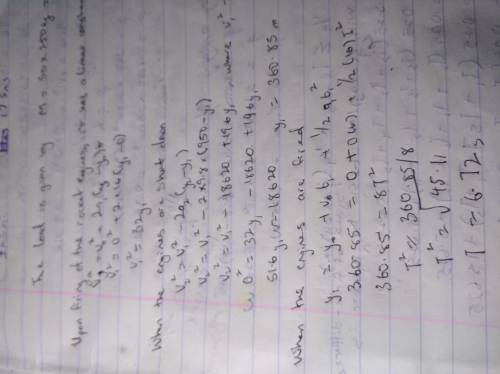 The load is given by M = 90 x 250 kg =
Upon firing of the rocket engines, it has a linear
v₁² = v₀² + 2a₁(y₁-y₀)
v₁² = 0² + 2·16(y₁-0)
v₁² = 32y₁
When the engines are shut down
v₂² = v₁² - 2a₂(y₂-y₁)
v₂² = v₁² - 2·9.8·(950-y₁)
v₂² = v₁² - 18620 + 19.6y₁ where v₁² -
0² = 32y₁ - 18620 + 19.6y₁
51.6y₁ = 18620 y₁ = 360.85 m
When the engines are fired
y₁ = y₀ + v₀t₁ + 1/2 at₁²
360.85 = 0 + 0(t) + 1/2(16)T²
360.85 = 8T²
T² = 360.85/8
T² = √45.11
T = 6.72s